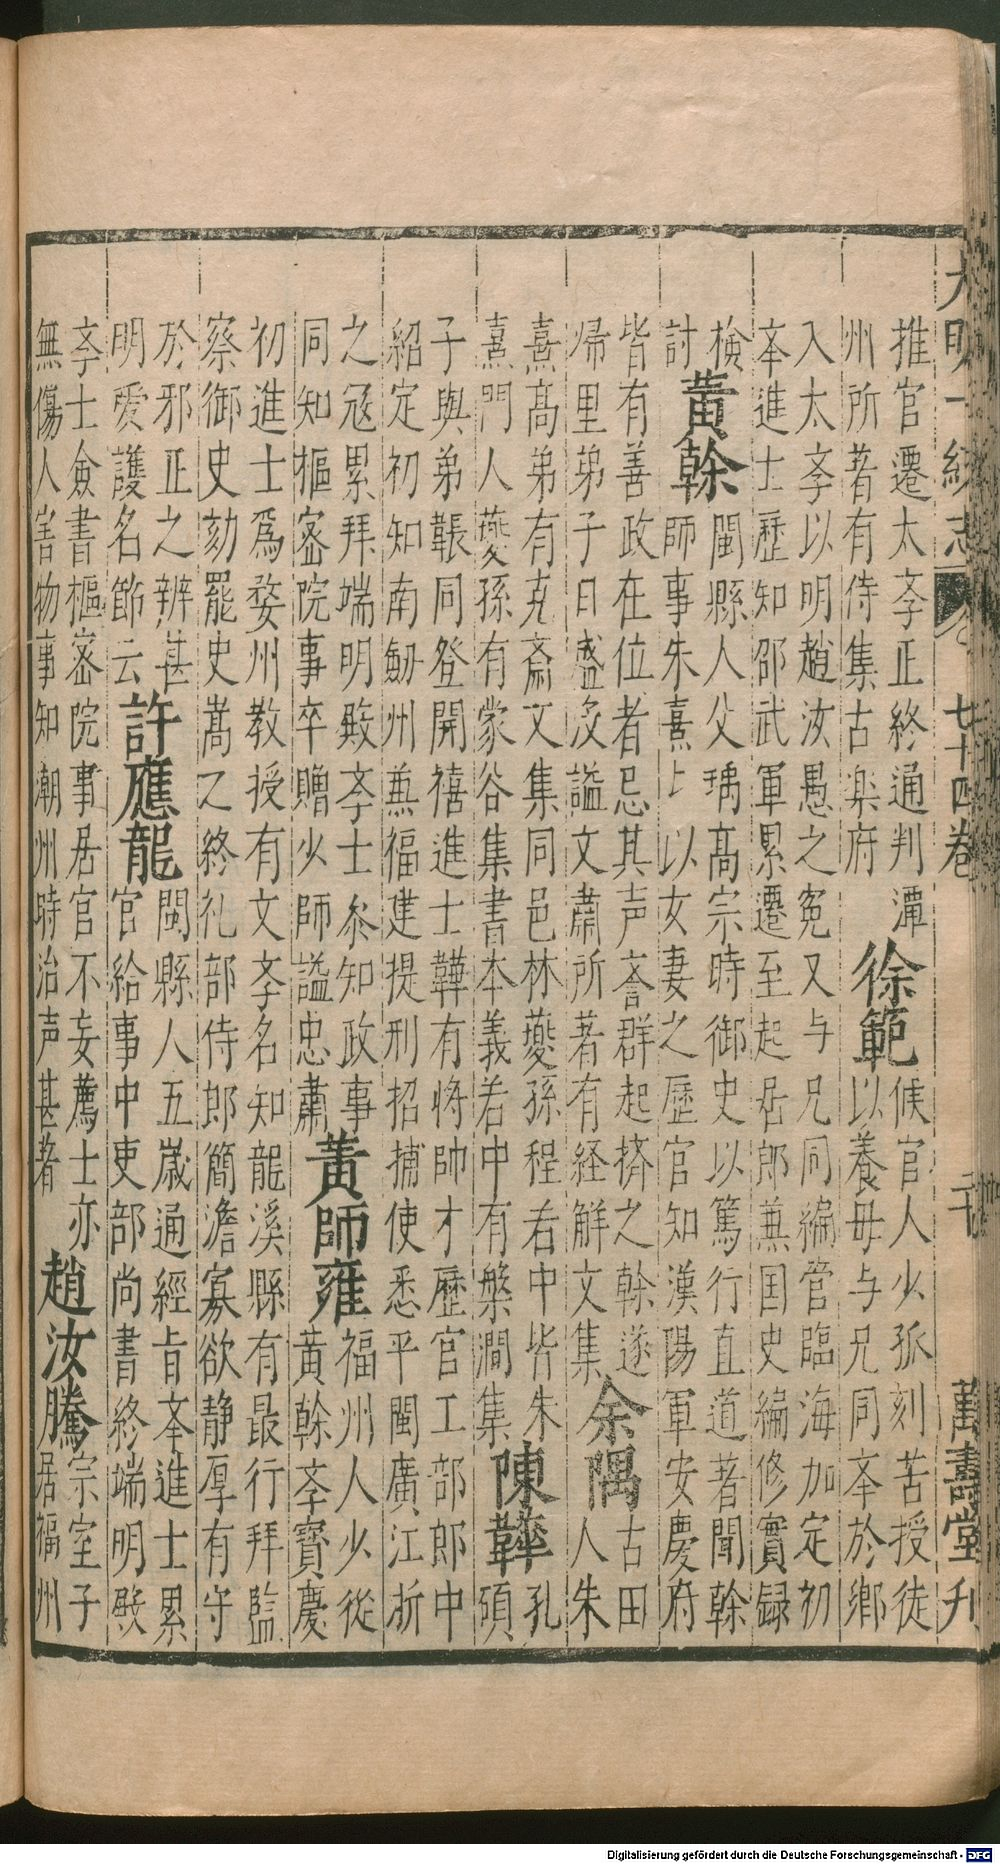 大明一統志 七十四卷 二十 萬壽堂刋
推官遷太斈正終通判潭
州所著有侍集古楽府
徐範
候官人少孤刻苦授徒
以養母与兄同夲於鄉
入太斈以明趙汝愚之冤又与兄同編管臨海加定初
夲進士歷知邵武軍累遷至起居郎兼国史編修實録
檢
討
黃榦
閩縣人父瑀高宗時御史以篤行直道著聞榦
師事朱熹匕以女妻之歷官知漢陽軍安慶府
皆有善政在位者忌其声吝群起擠之榦遂
帰里弟子日盛沒謚文肅所著有経解文集
余隅
古田
人朱
熹高弟有克斎文集同邑林夔孫程若中皆朱
熹門人夔孫有蒙谷集書本義若中有槃澗集
陳韡
孔
碩
子與弟韔同登開禧進士韡有將帥才歷官工部郎中
紹定初知南劒州兼福建提刑招捕使悉平閩廣江浙
之冦累拜端明殿斈士叅知政事
同知樞密院事卒贈少師謚忠肅
黃師雍
福州人少從
黃榦斈寳慶
初進士爲婺州教授有文斈名知龍溪縣有最行拜監
察御史劾罷史嵩之終礼部侍郎簡澹寡欲静厚有守
於邪正之辨甚
明愛護名節云
許應龍
閩縣人五歲通經旨夲進士累
官給事中吏部尚書終端明殿
斈士僉書樞密院事居官不妄薦士亦
無傷人害物事知潮州時治声甚著
趙汝騰
宗室子
居福州
Digitalisierung gefördert durch die Deutsche Forschungsgemeinschaft - DFG